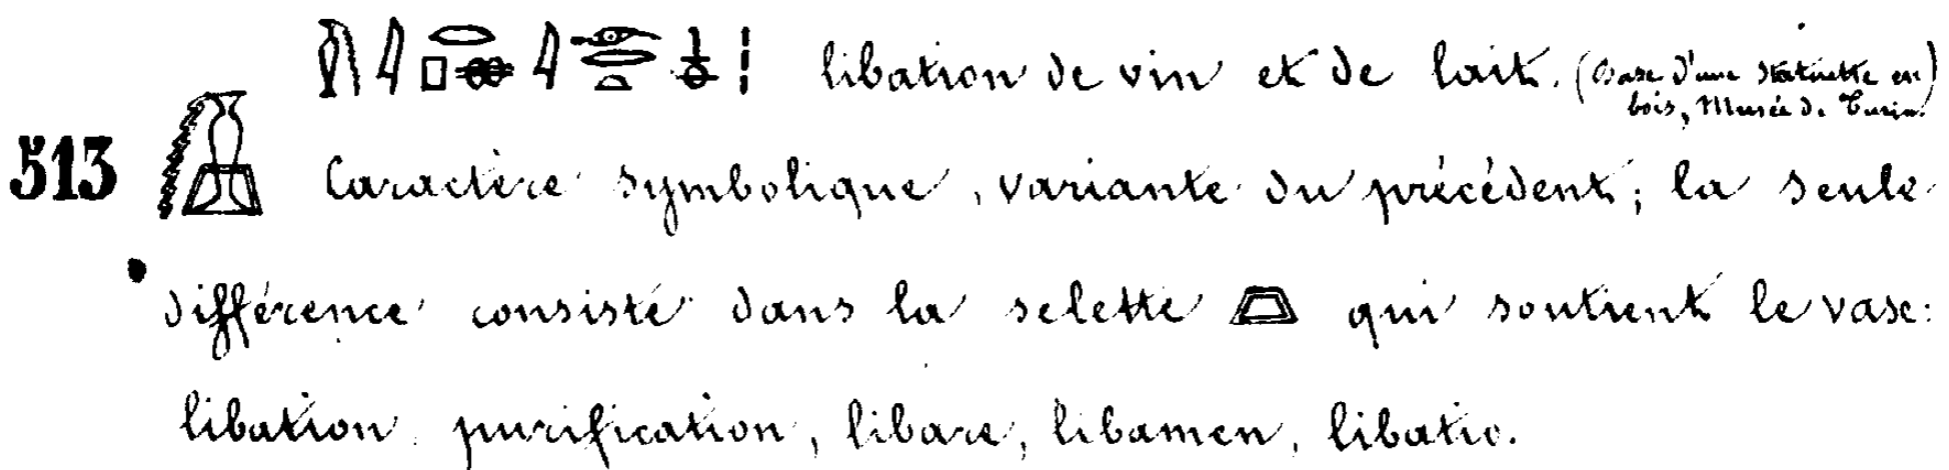 libation de vin et de lait. (Base d'une statuette en bois, Musée de Turin)
513 Caractère symbolique, variante du précédent; la seule
différence consiste dans la selette qui soutient le vase:
libation, purification, libare, libamen, libatio.